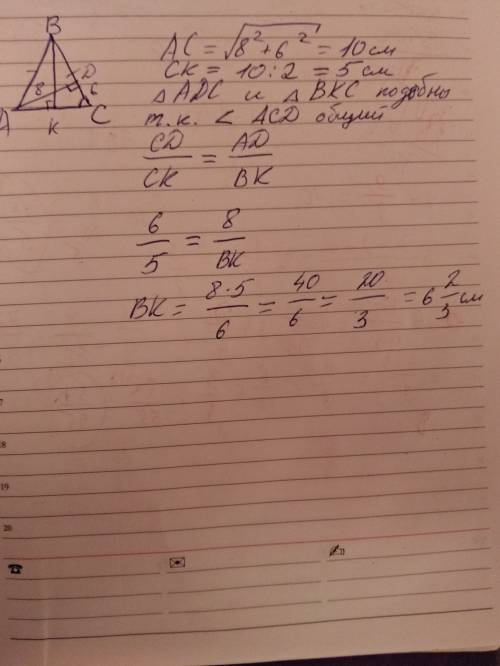 B
D
8
6
A
K
C
AC = √8² + 6² = 10 см
CK = 10 : 2 = 5 см
△ ADC и △ BKC подобны
т.к. < ACD общий
CD/CK = AD/BK
6/5 = 8/BK
BK = 8·5/6 = 40/6 = 20/3 = 6 2/3 см
18
19
20